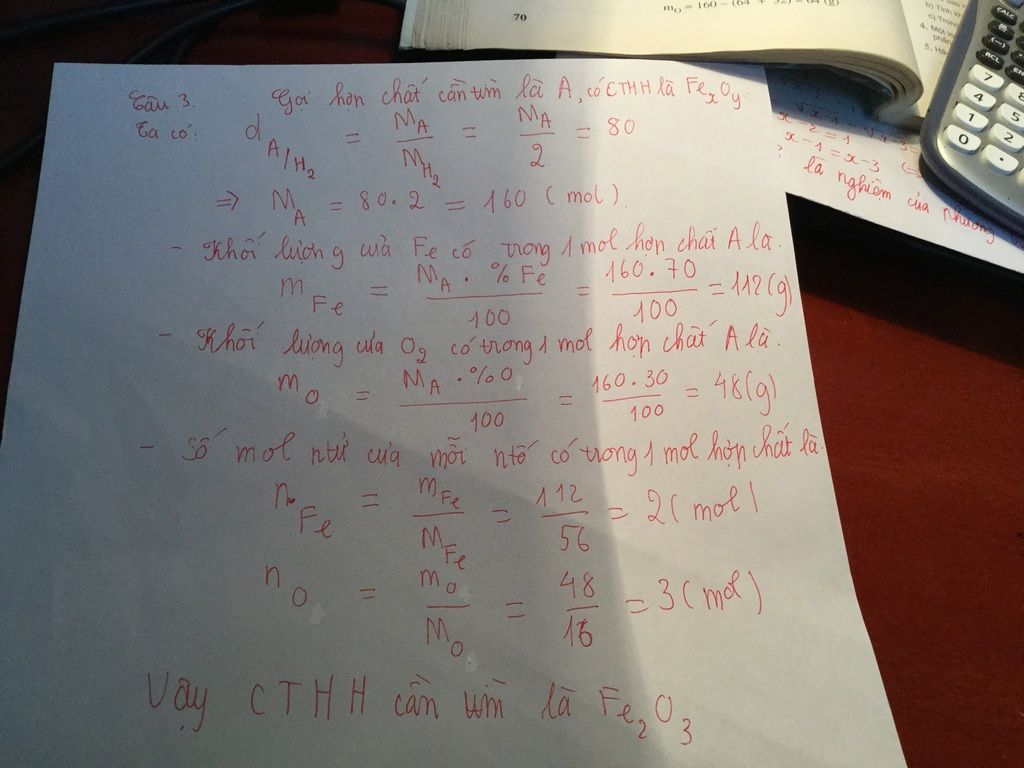 70
m_O = 160 − (64 + 32) = 64 (g)
b) Tính
c) Trong
4. Một
phần
5. Hã
CALC
RCL
7
4
8
1
5
0
2
Câu 3. Gọi hợp chất cần tìm là A, có CTHH là FexOy.
Ta có: d A/H2 = MA/MH2 = MA/2 = 80
=> MA = 80.2 = 160 (mol).
- Khối lượng của Fe có trong 1 mol hợp chất A là.
mFe = MA . %Fe/100 = 160.70/100 = 112(g)
- Khối lượng của O2 có trong 1 mol hợp chất A là.
mO = MA .%O/100 = 160.30/100 = 48(g)
- Số mol ntử của mỗi ntố có trong 1 mol hợp chất là.
nFe = mFe/MFe = 112/56 = 2(mol)
nO = mO/MO = 48/16 = 3(mol)
Vậy CTHH cần tìm là Fe2O3
x-2=1
x-1=x-3
là nghiệm của phương